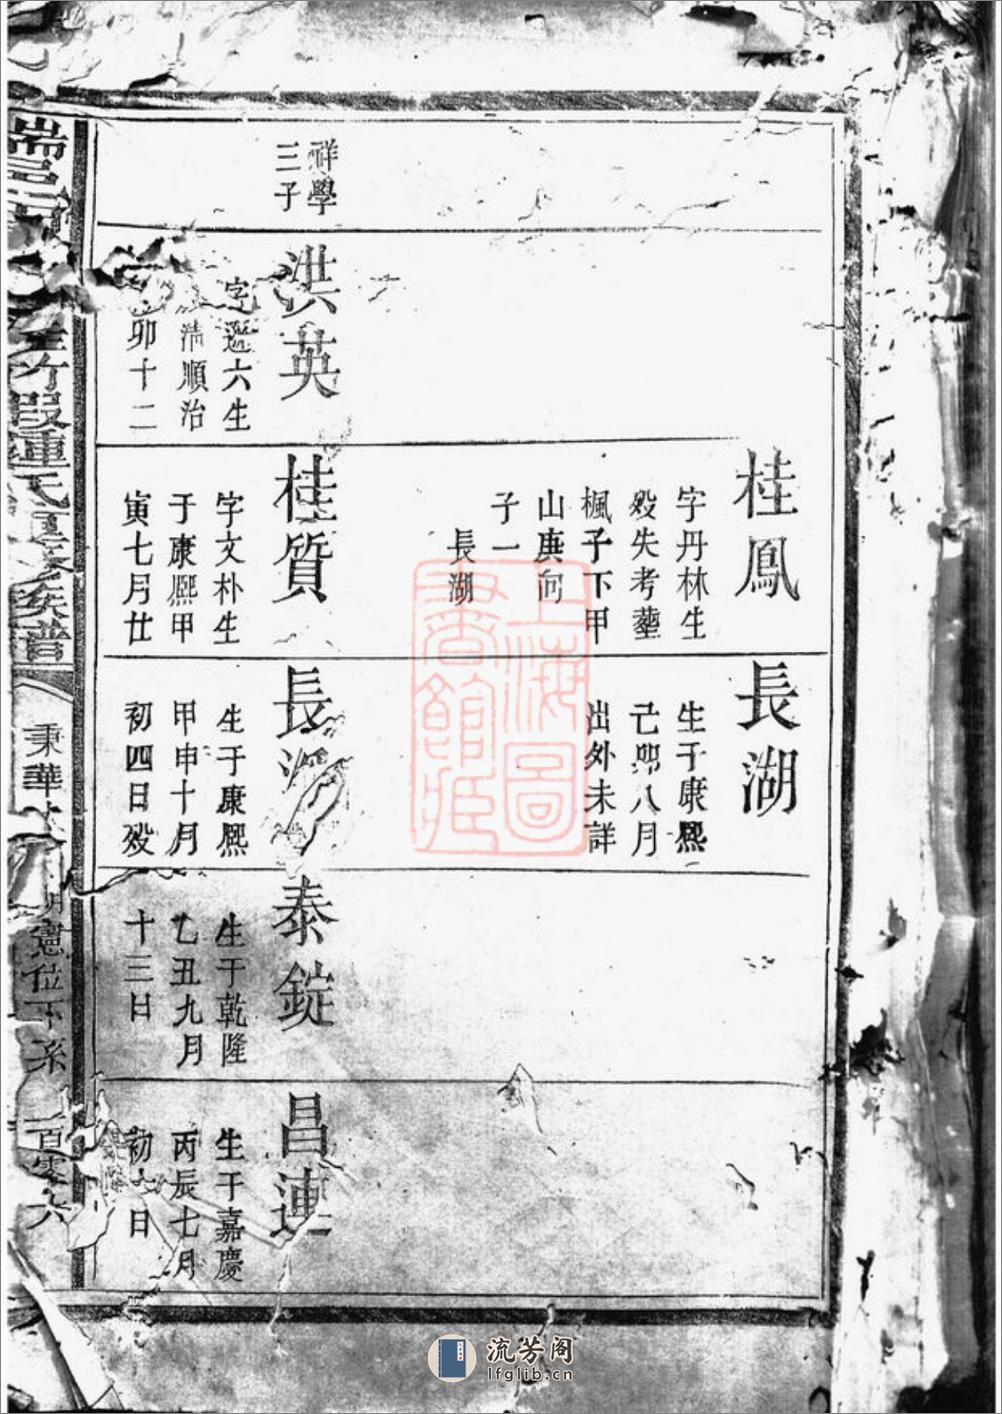 祥學
三子
洪英
字
六生
清順治
卯十二
桂鳳
字丹林生
歿失考塟
楓子下甲
山庚向
子一
長湖
桂質
字文朴生
于康熙甲
寅七月廿
長湖
生于康熙
己卯八月
出外未詳
長
生于康熙
甲申十月
初四日歿
泰錠
生于乾隆
乙丑九月
十三日
昌連
生于嘉慶
丙辰七月
初六日
瑞邑
鍾氏
族譜
秉華
憲位下系
二百零六
上海圖
書館藏
流芳阁
lfglib.cn